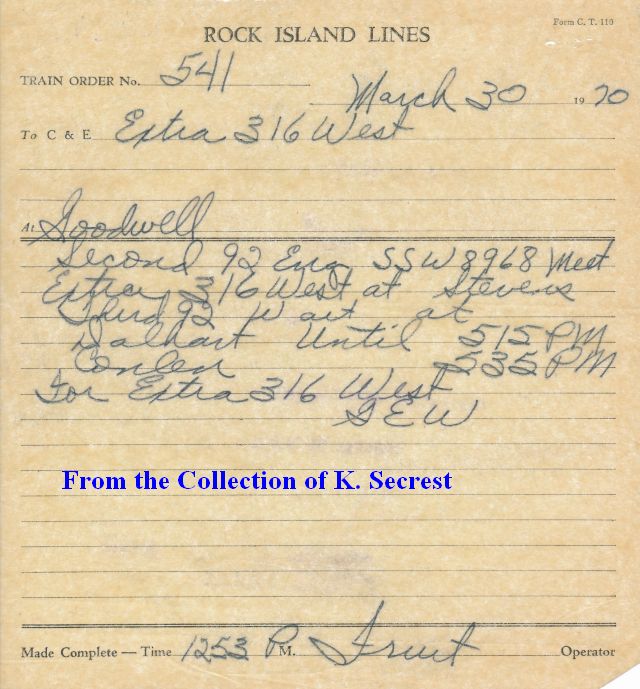 Form C. T. 110
ROCK ISLAND LINES
TRAIN ORDER No. 541
March 30 1970
To C & E Extra 316 West
At Goodwell
Second 92 Eng SSW 8968 Meet
Extra 316 West at Stevens
Third 92 Wait at
Dalhart Until 515 PM
Conlen 535 PM
For Extra 316 West
GEW
From the Collection of K. Secrest
Made Complete — Time 1253 P M. Fruit Operator